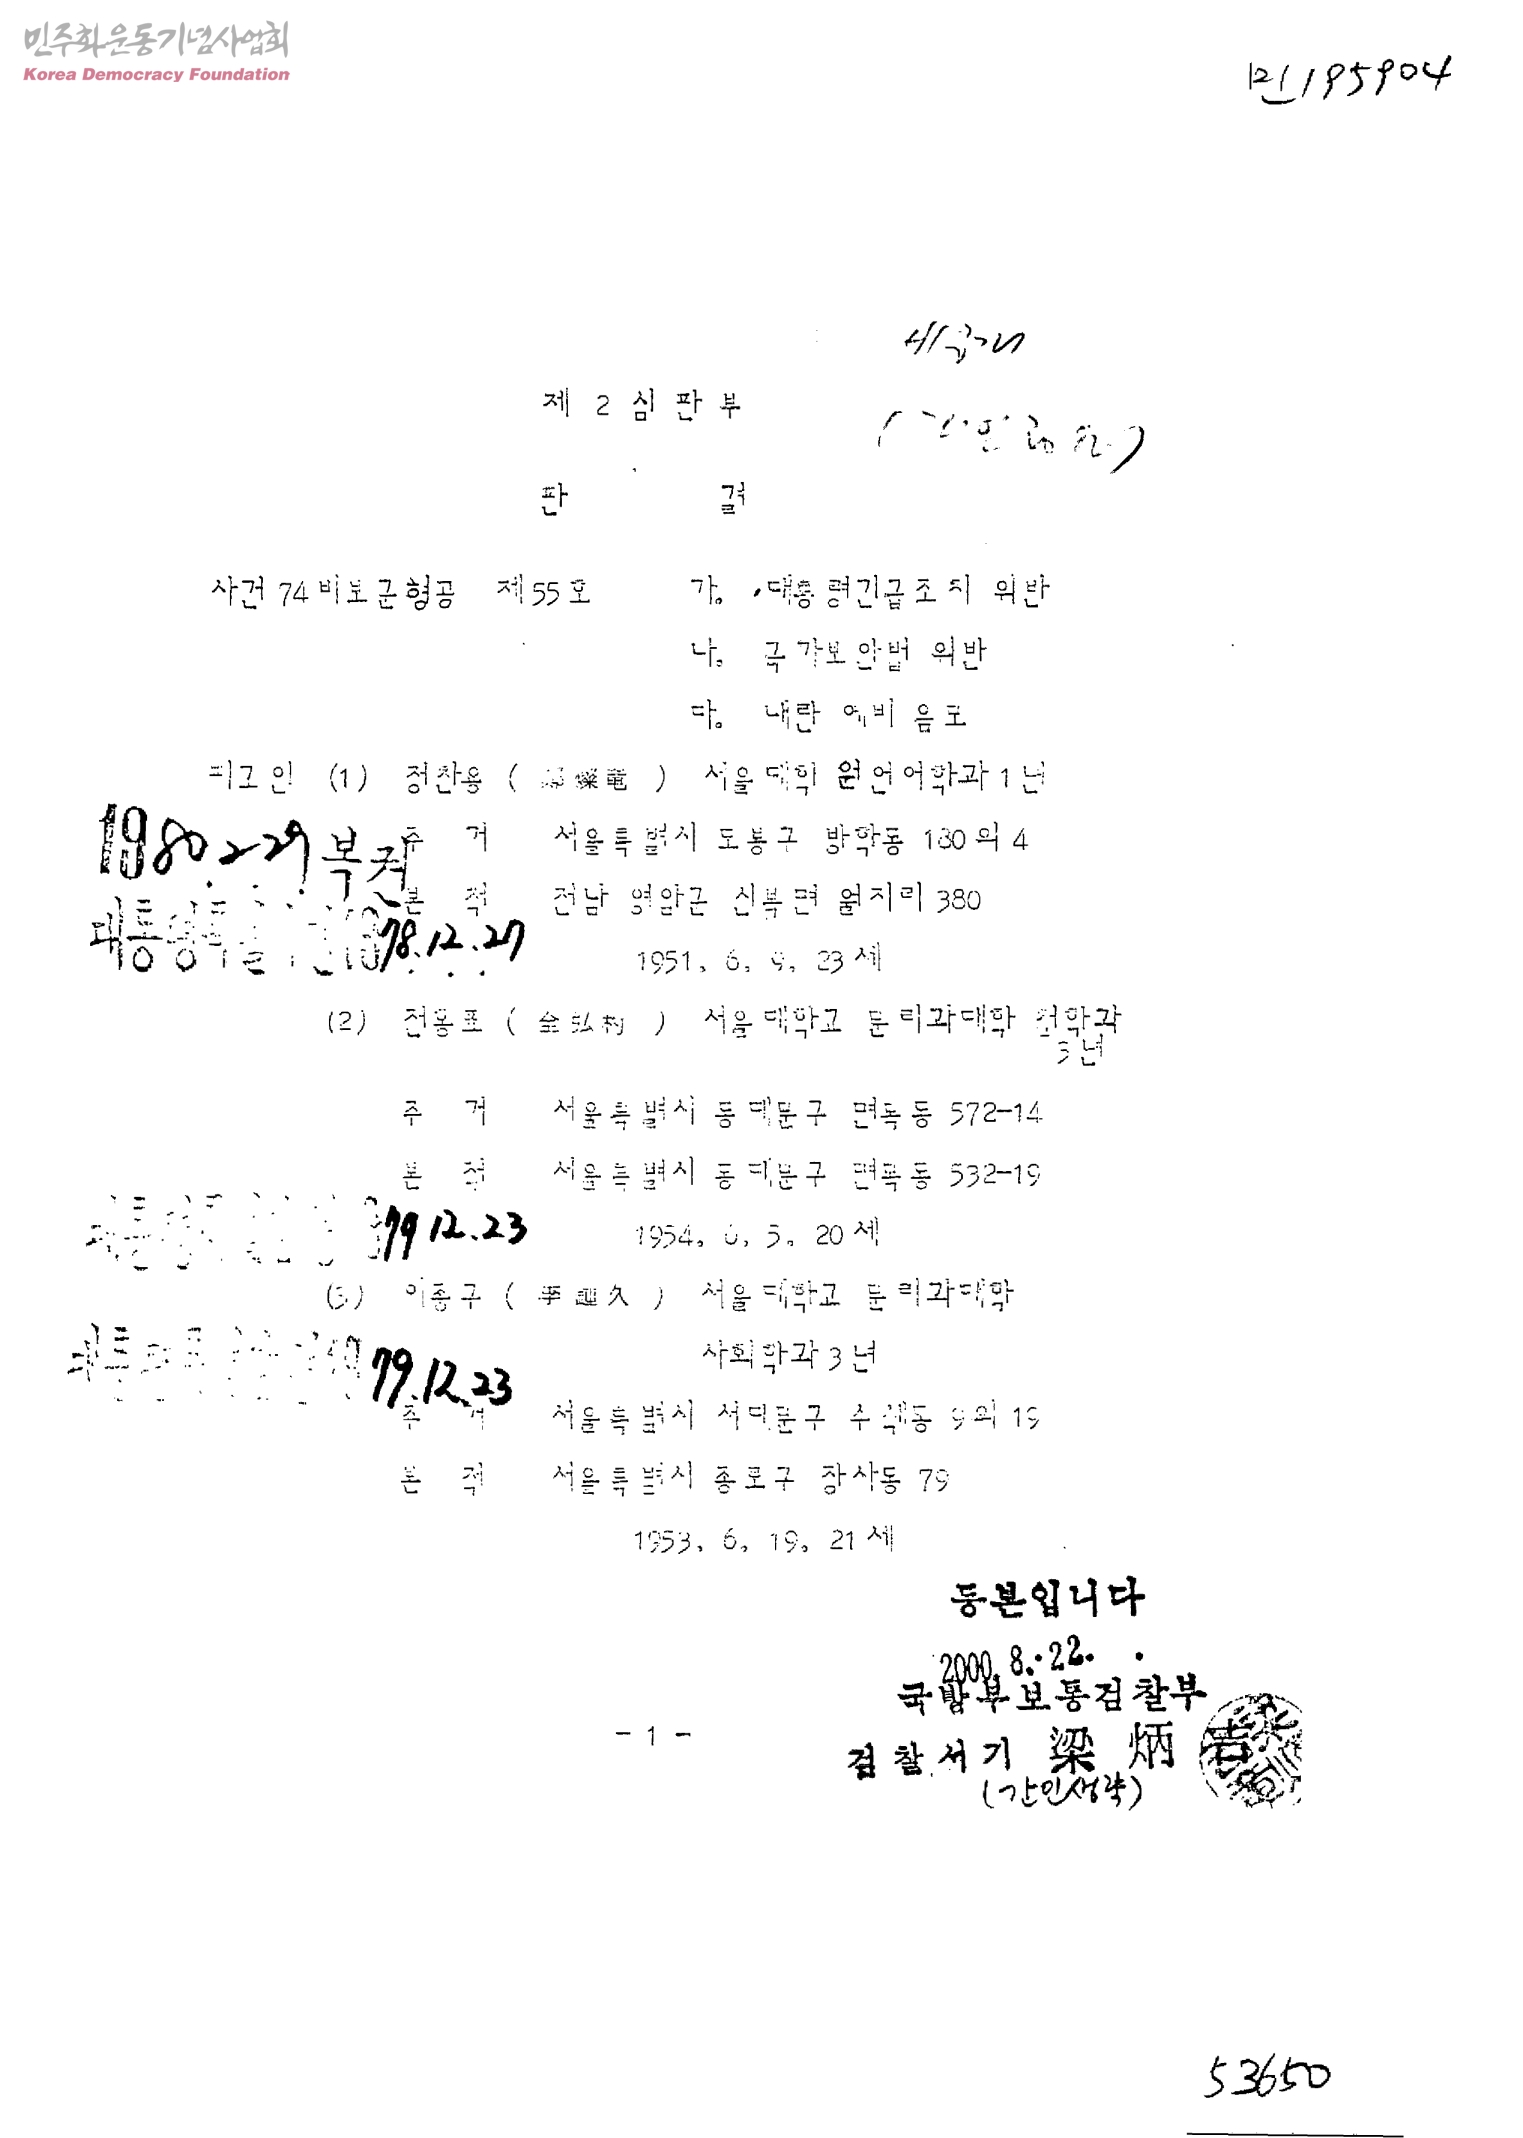 민주화운동기념사업회
Korea Democracy Foundation
민195904
제 2 심판부
판 결
사건 74 비보군형공 제 55 호 가. 대통령긴급조치 위반
나. 국가보안법 위반
다. 내란 예비 음모
피고인 (1) 정찬용 ( 燦竜 ) 서울대학 원언어학과 1 년
1980.2.29 복권
주 거 서울특별시 도봉구 방학동 180 의 4
본 적 전남 영암군 신북면 월지리 380
대통령특 78.12.27
1951. 6. 9. 23 세
(2) 전홍표 ( 全弘杓 ) 서울대학교 문리과대학 철학과
3 년
주 거 서울특별시 동대문구 면목동 572-14
본 적 서울특별시 동대문구 면목동 532-19
79.12.23
1954. 6. 5. 20 세
(3) 이종구 ( 李 久 ) 서울대학교 문리과대학
사회학과 3 년
79.12.23
주 거 서울특별시 서대문구 수색동 9 의 19
본 적 서울특별시 종로구 장사동 79
1953. 6. 19. 21 세
등본입니다
2000. 8. 22.
국방부보통검찰부
검찰서기 梁 炳 吉
(간인생략)
- 1 -
53650